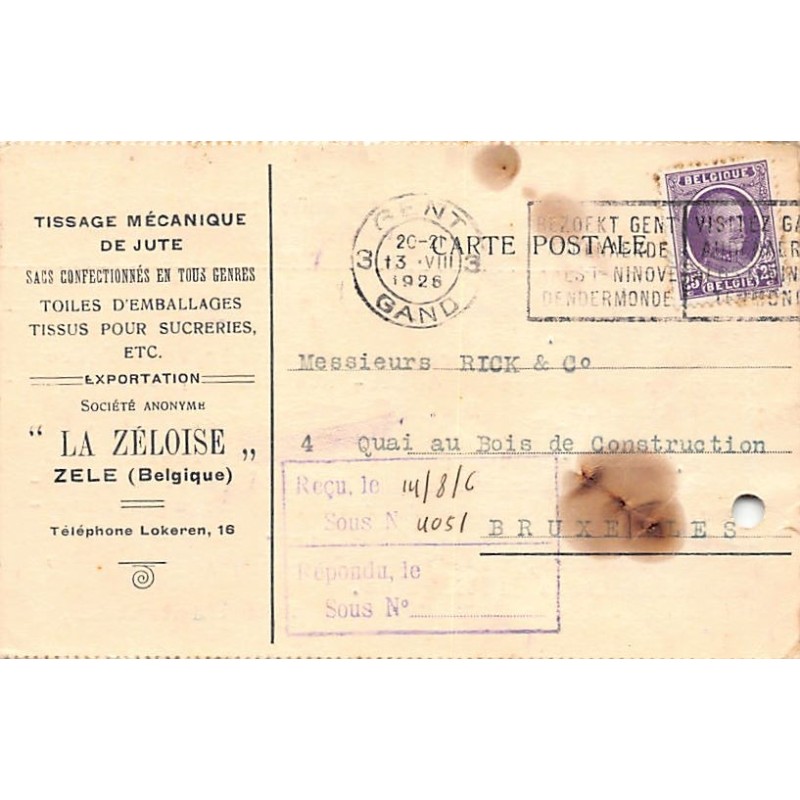 TISSAGE MÉCANIQUE
DE JUTE
SACS CONFECTIONNÉS EN TOUS GENRES
TOILES D'EMBALLAGES
TISSUS POUR SUCRERIES,
ETC.
EXPORTATION
SOCIÉTÉ ANONYME
“ LA ZÉLOISE „
ZELE (Belgique)
Téléphone Lokeren, 16
GENT
3 20-21 3
13 VIII
1926
GAND
CARTE POSTALE
BEZOEKT GENT
NINOVE
DENDERMONDE
VISITEZ GA
BELGIQUE
25 BELGIE 25
Messieurs RICK & Co
4 Quai au Bois de Construction
BRUXELLES
Reçu, le 14/8/6
Sous N 4051
Répondu, le
Sous No